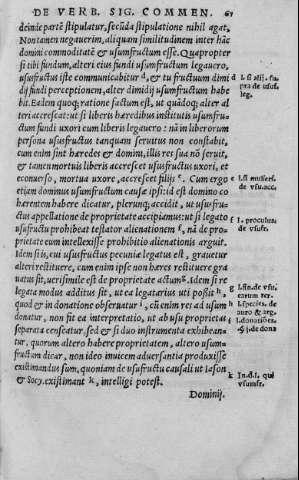 DE VERB. SIG. COMMEN. 67
deinde partē stipulatur, secūda stipulatione nihil agat,
Non tamen negauerim, aliquam similitudinem inter hāc
domini commoditatē & usumfructum esse. Quapropter
si tibi fundum, alteri eius fundi usumfructum legauero,
ususfructus iste communicabitur d, & tu fructuum dimi
dij fundi perceptionem, alter dimidij usumfructum habe
bit. Eadem quoq; ratione factum est, ut quādoq; alter al
teri accrescat: ut si liberis hæredibus institutis usumfru-
ctum fundi uxori cum liberis legauero: nā in liberorum
persona ususfructus tanquam seruitus non constabit,
cum enim sint hæredes & domini, illis res sua nō seruit,
& tamen mortuis liberis accrescet ususfructus uxori, et
econuerso, mortua uxore, accrescet filijs e. Cum ergo
etiam dominus usumfructum causæ ipsi: id est domino co
hærentem habere dicatur, plerunq; accidit, ut ususfru-
ctus appellatione de proprietate accipiamus: ut si legato
ususfructu prohibeat testator alienationem f, nā de pro-
prietate eum intellexisse prohibitio alienationis arguit.
Idem si is, cui ususfructus pecuniæ legatus est, grauetur
alteri restituere, cum enim ipse non hæres restituere gra
uatus sit, uerisimile est de proprietate actum g. Idem si re
legata modus additus sit, ut ea legatarius uti possit h,
quod & in donatione obseruatur i, cū enim res ad usum
donatur, non fit ea interpretatio, ut ab usu proprietas
separata censeatur. sed & si duo instrumenta exhibean-
tur, quorum altero habere proprietatem, altero usum-
fructum dicar, non ideo inuicem aduersantia produxisse
existimandus sum, quoniam de usufructu causali ut Iason
& Socy. existimant k, intelligi potest.
Dominij.
d l. si alij. su-
pra de usuf.
leg.
e l. si mulieri.
de usu. acc.
f l. proculus.
de usufr.
g l. fin. de usu.
earum rer.
h l. species. de
auro & arg.
i l. donatiōes.
§ j. de dona
k In. d. l. qui
usumfr.